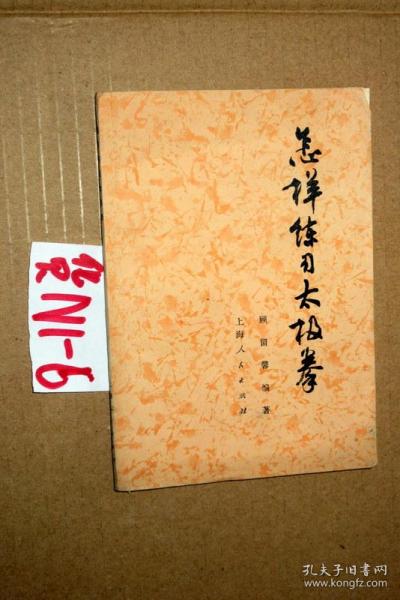 怎样练习太极拳
顾留馨编著
上海人民出版社
N1-6
孔夫子旧书网
www.kongfz.com